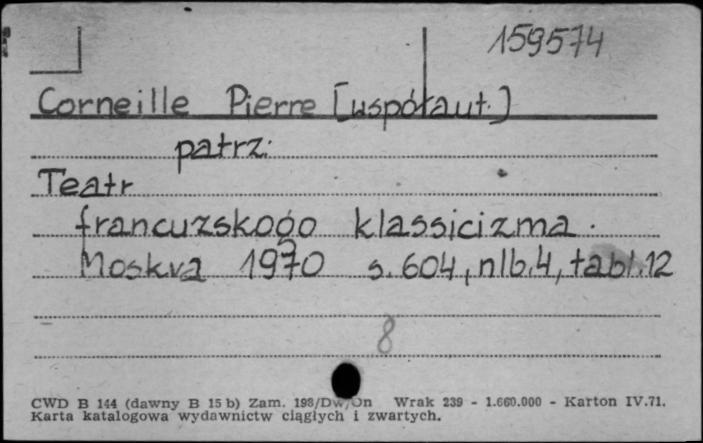 159574
Corneille Pierre [współaut.]
patrz:
Teatr
francuzskogo klassicizma.
Moskva 1970 s. 604, nlb. 4, tabl. 12
8
CWD B 144 (dawny B 15 b) Zam. 198/Dw/On Wrak 239 - 1.660.000 - Karton IV.71.
Karta katalogowa wydawnictw ciągłych i zwartych.